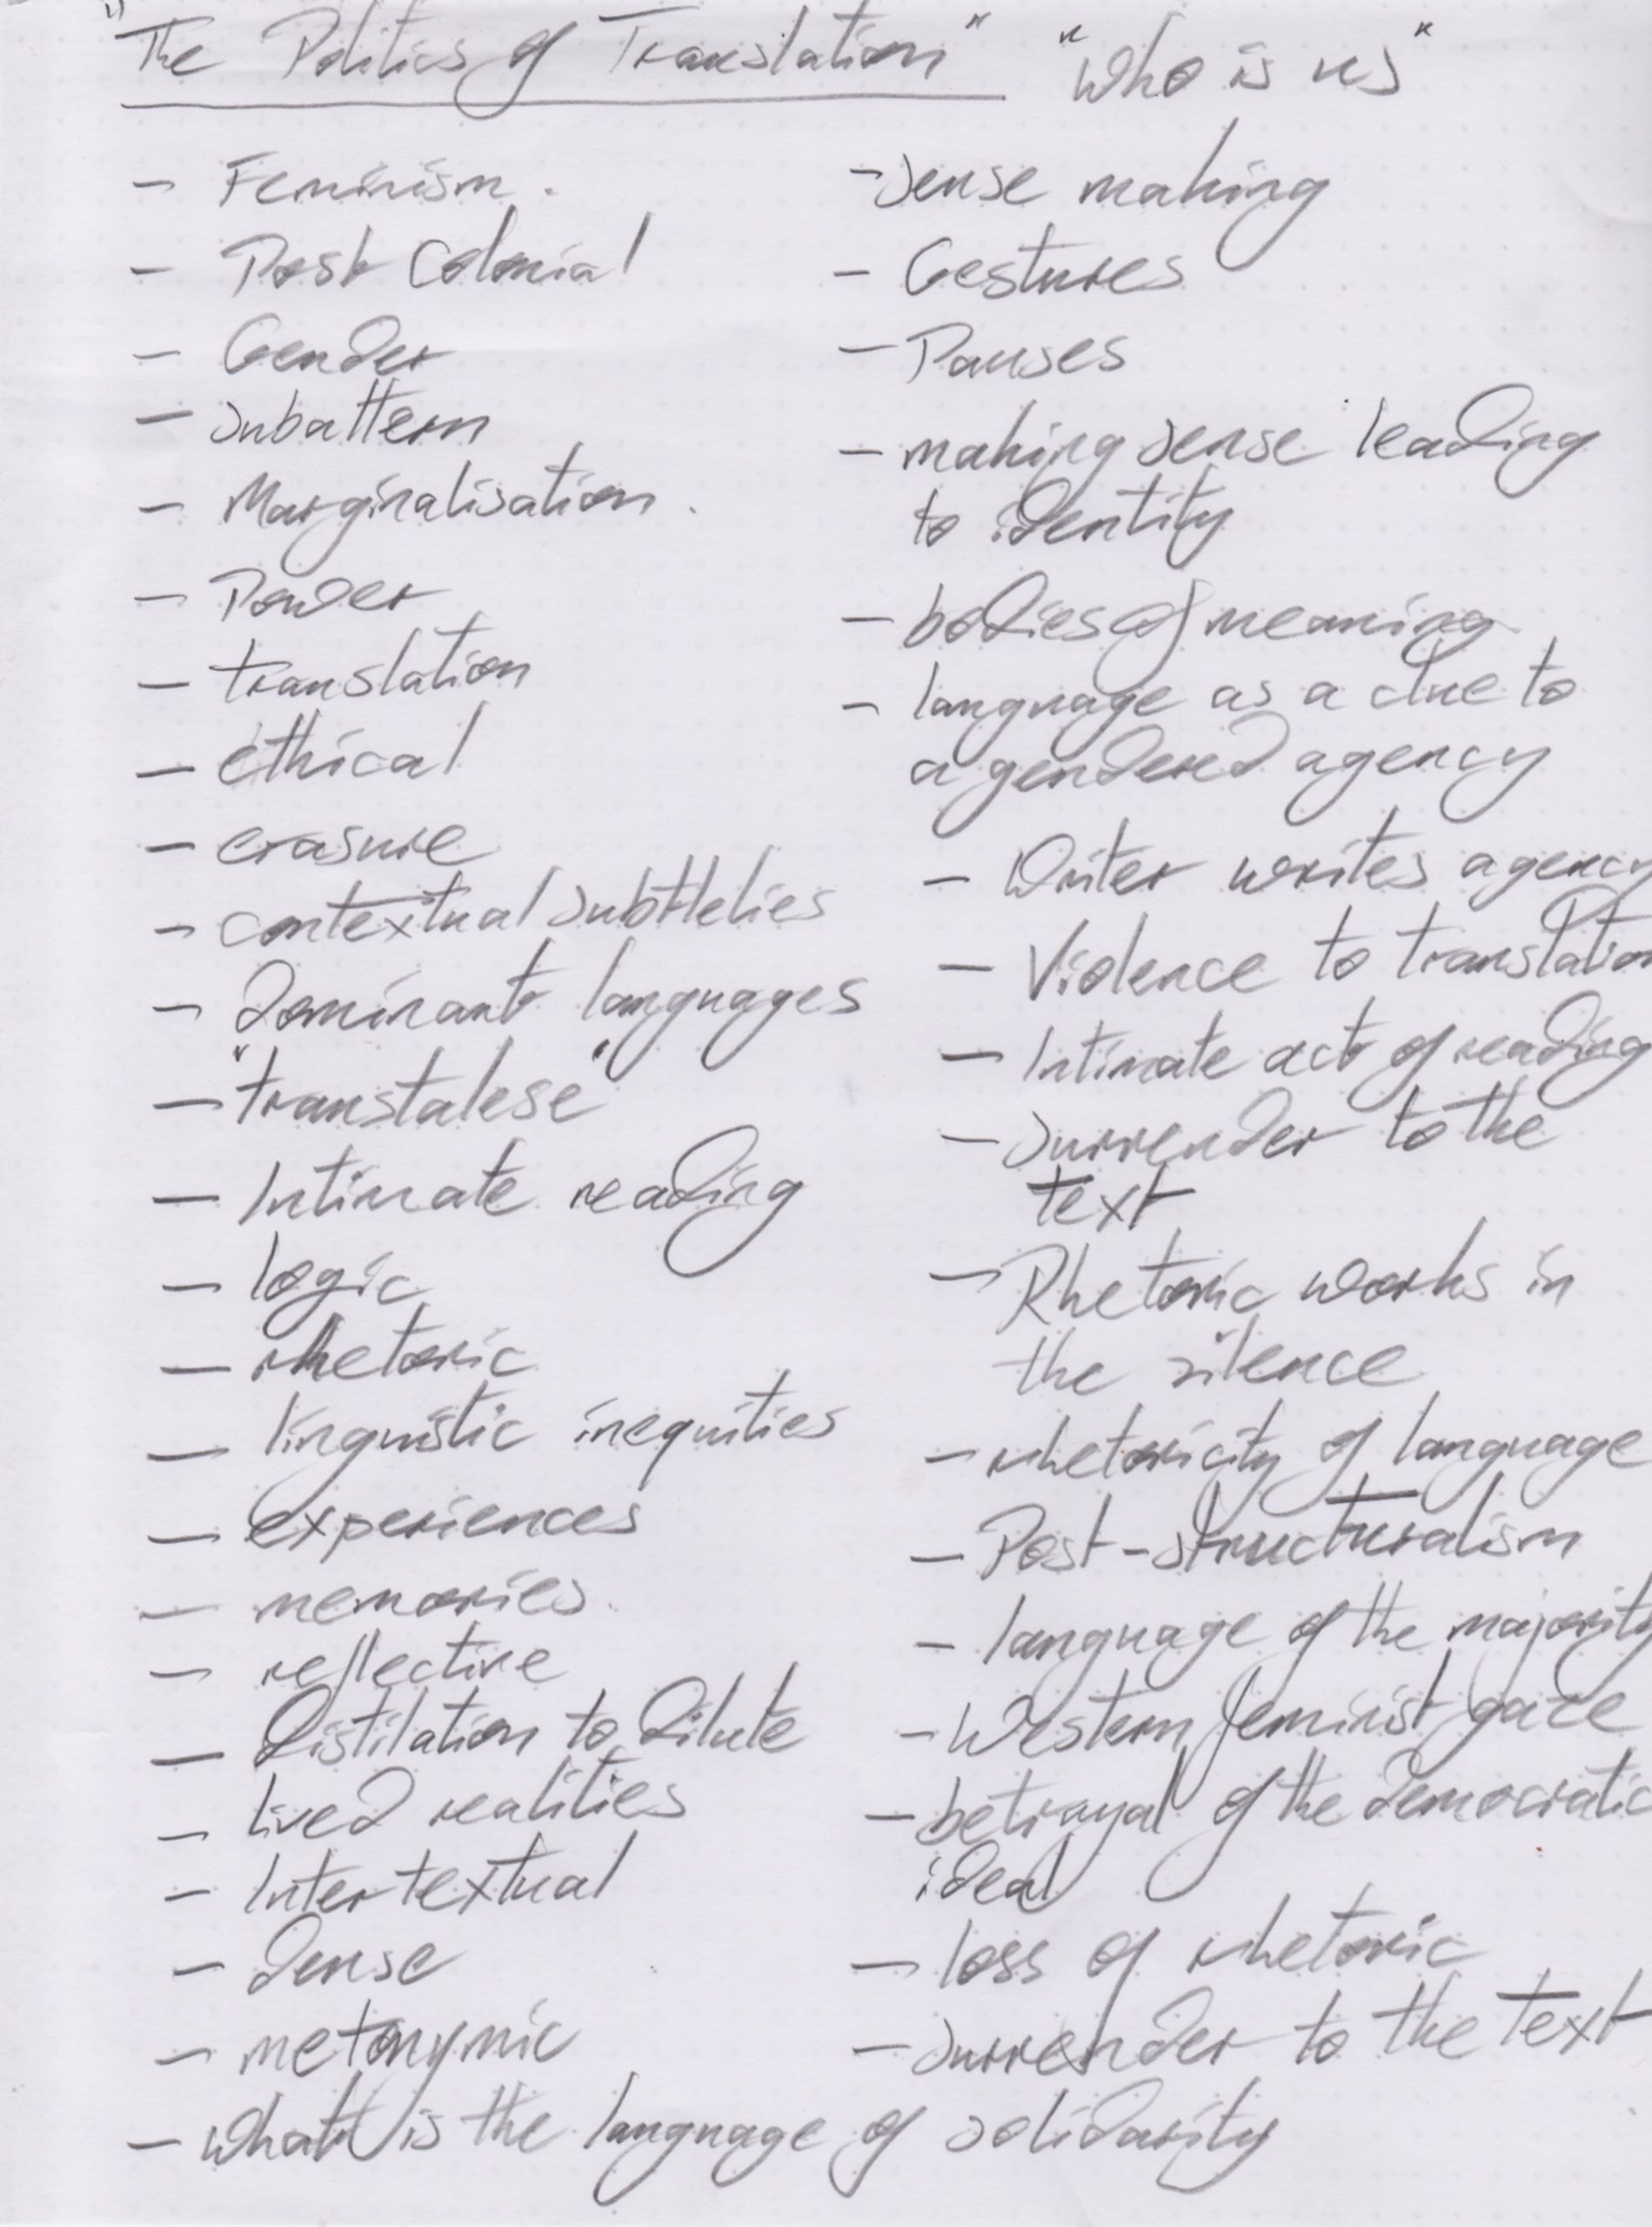 "The Politics of Translation"
"Who is us"
- Feminism.
- Post Colonial
- Gender
- Subaltern
- Marginalisation.
- Power
- translation
- ethical
- erasure
- contextual subttleties
- Dominant languages
- "transtalese"
- Intimate reading
- logic
- rhetoric
- linguistic inequities
- experiences
- memories.
- reflective
- Distilation to Dilute
- lived realities
- Intertextual
- Dense
- metonymic
- What is the language of solidarity
- Sense making
- Gestures
- Pauses
- making sense leading
to identity
- bodies of meaning
- language as a clue to
a gendered agency
- Writer writes agency
- Violence to translation
- Intimate act of reading
- Surrender to the
text
- Rhetoric works in
the silence
- rhetoricity of language
- Post-structuralism
- language of the majority
- Western feminist gaze
- betrayal of the democratic
ideal
- loss of rhetoric
- Surrender to the text